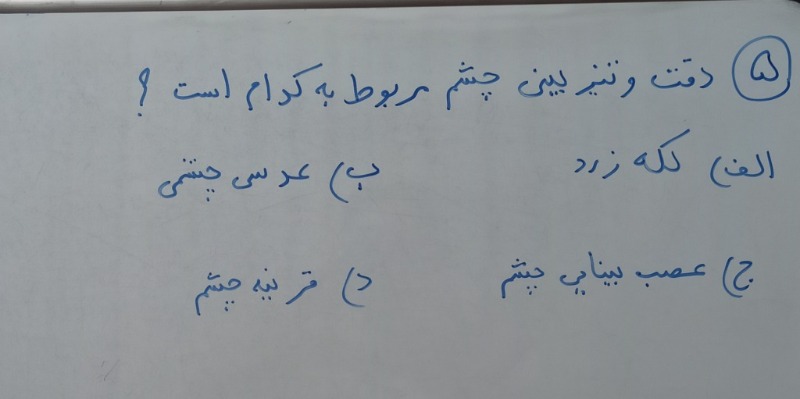 ۵ دقت و تیزبینی چشم مربوط به کدام است ؟
الف) لکه زرد ب) عدسی چشمی
ج) عصب بینایی چشم د) قرنیه چشم